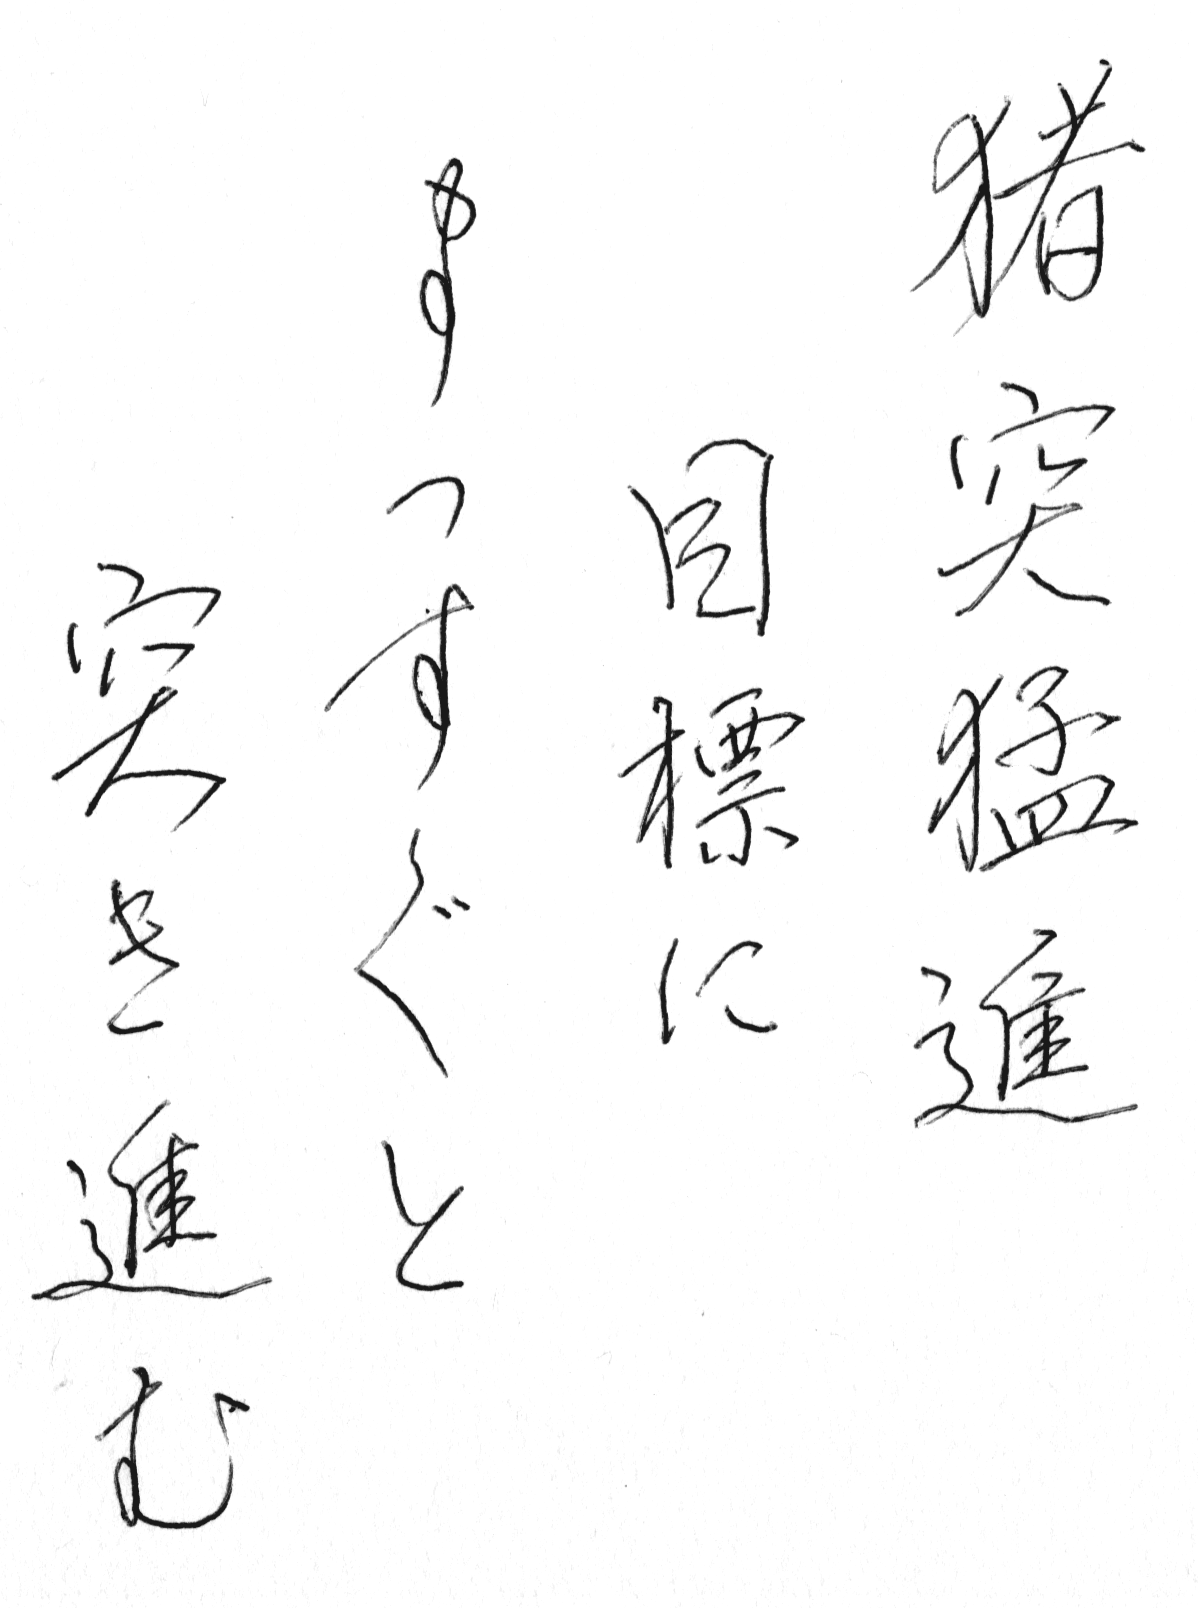 猪突猛進
目標に
まっすぐと
突き進む